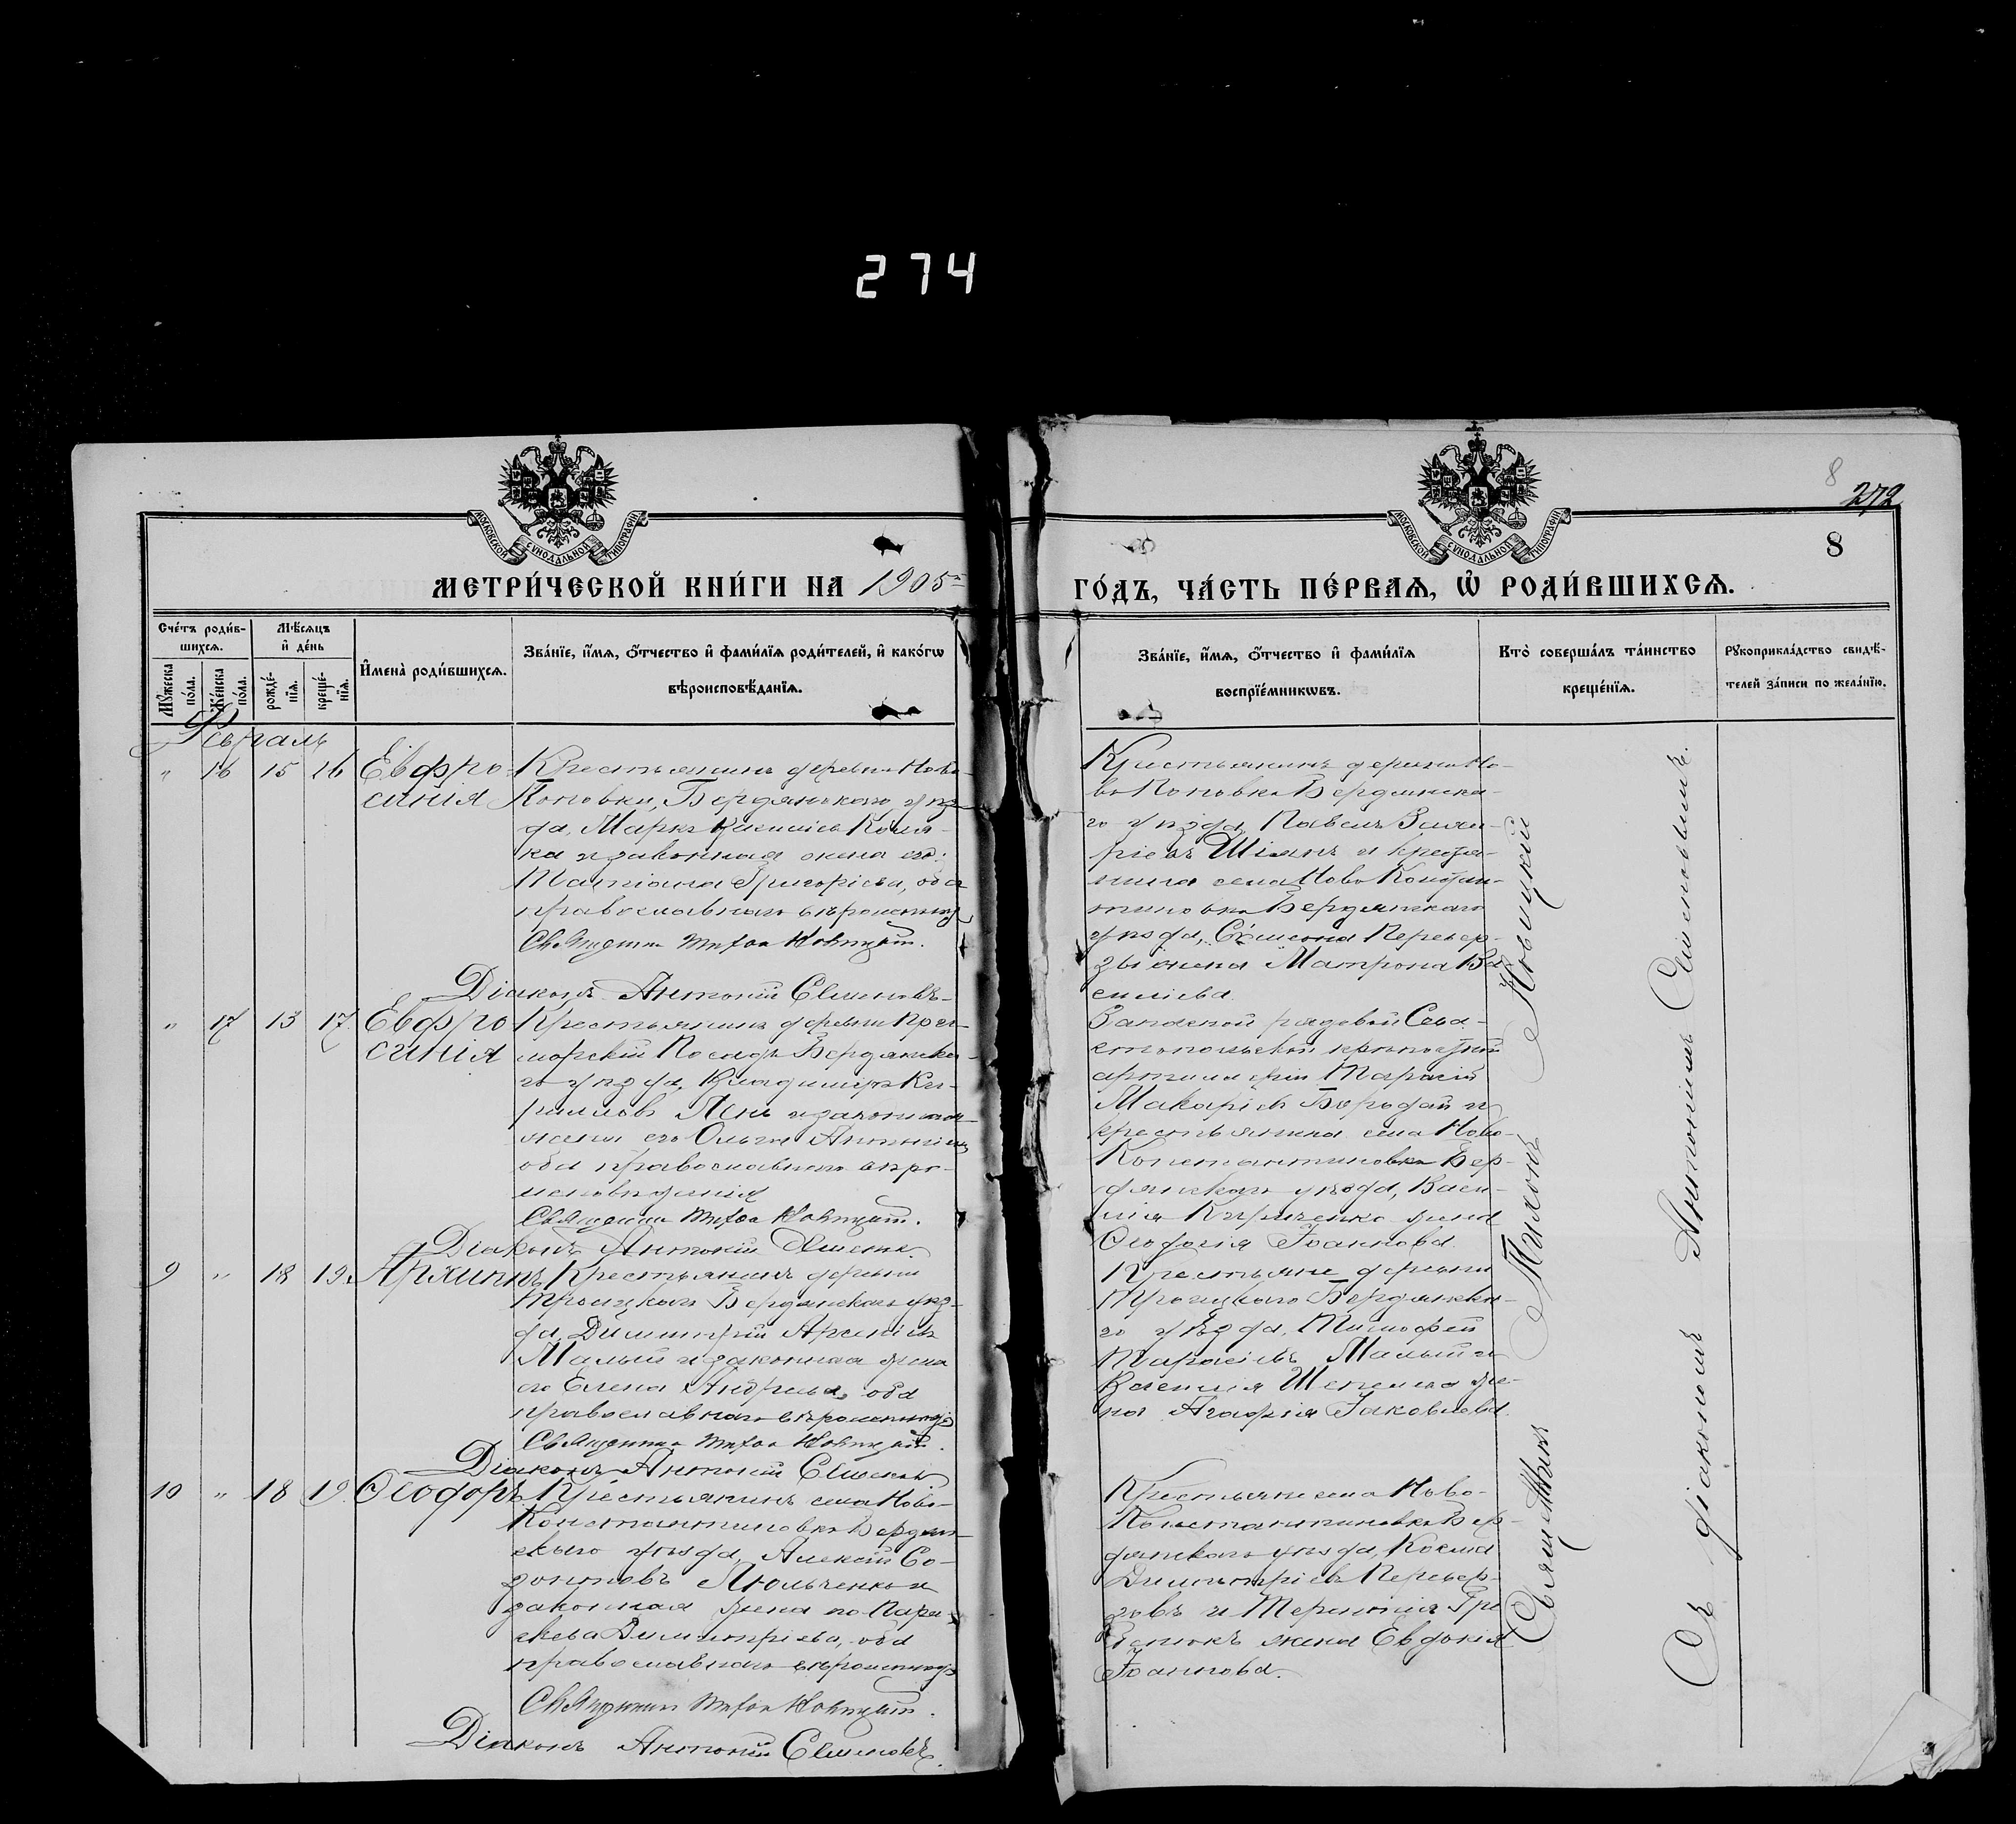 274
8
272
МОСКОВСКОЙ СУНОДАЛЬНОЙ ТИПОГРАФІИ
МОСКОВСКОЙ СУНОДАЛЬНОЙ ТИПОГРАФІИ
8
МЕТРИ́ЧЕСКОЙ КНИ́ГИ НА 1905
ГО́ДЪ, ЧА́СТЬ ПЕ́РВАѦ, Ѡ҆ РОДИ́ВШИХСѦ.
Сче́тъ роди́в-
шихсѧ.
Мꙋ́жеска
по́ла.
Же́нска
по́ла.
Мѣ́сѧцъ
и҆ де́нь
рожде́-
нїѧ.
креще́-
нїѧ.
И҆мена̀ роди́вшихсѧ.
Зва́нїе, и҆́мѧ, ѻ҆́тчество и҆ фами́лїѧ роди́телей, и҆ како́гѡ
вѣроисповѣ́данїѧ.
Зва́нїе, и҆́мѧ, ѻ҆́тчество и҆ фами́лїѧ
воспрїе́мникѡвъ.
Кто̀ соверша́лъ та́инство
креще́нїѧ.
Рꙋкоприкла́дство свидѣ́-
телей за́писи по жела́нїю.
Февраль
" 16 15 16 Евфро-
синия
Крестьянинъ деревни Ново-
Поповки, Бердянскаго уѣз-
да, Маркъ
ка и законная жена его:
Татіана Григоріева, оба
православнаго
Священник Тихон Новицкий.
Діаконъ Антоній Семеновъ
Крестьянинъ деревни Но-
во Поповки Бердянска-
го уѣзда, Павелъ
Шіянъ и крестья-
нина села Ново Констан-
тиновки Бердянскаго
уѣзда, Симеона Перевер-
зы жена Матрона Ва-
силіева.
" 17 13 17 Евфро
синія
Крестьянинъ деревни При-
морскій Посадъ Бердянска-
го уѣзда, Владиміръ Ки-
рилловъ и законная
жена его Ольга
оба православнаго вѣро-
исповѣданія
Священник Тихон Новицкий.
Діаконъ Антоній Семеновъ
Запасной рядовой Сева-
стопольской крѣпостной
артиллеріи Тарасій
Макаріевъ Бородай и
крестьянина села Ново-
Константиновки Бер-
дянскаго уѣзда, Васи-
лія Кириченко жена
Ѳеодосія Іоаннова.
9 " 18 19 Архиппъ
Крестьянинъ деревни
Троицкаго Бердянскаго уѣз-
да, Димитрій Арсеніевъ
Малый и законная жена
его Елена Андреева, оба
православнаго
Священник Тихон Новицкий.
Діаконъ Антоній Семеновъ
Крестьяне деревни
Троицкаго Бердянска-
го уѣзда, Тимофей
Тарасіевъ Малый и
Василія Шепеля же-
на Агафія Іаковлева.
10 " 18 19 Ѳеодоръ
Крестьянинъ села Ново-
Константиновки Бердян-
скаго уѣзда, Алексій Со-
зонтовъ Люльченко и
законная жена его Пара-
скева Димитріева, оба
православнаго
Священник Тихон Новицкий.
Діаконъ Антоній Семеновъ.
Крестьяне села Ново-
Константиновки Бер-
дянскаго уѣзда, Косма
Димитріевъ Перевер-
зовъ и Терентія
жена Евдокія
Іоаннова.
Священникъ Тихонъ Новицкій
Съ діакономъ Антоніемъ Семеновымъ.